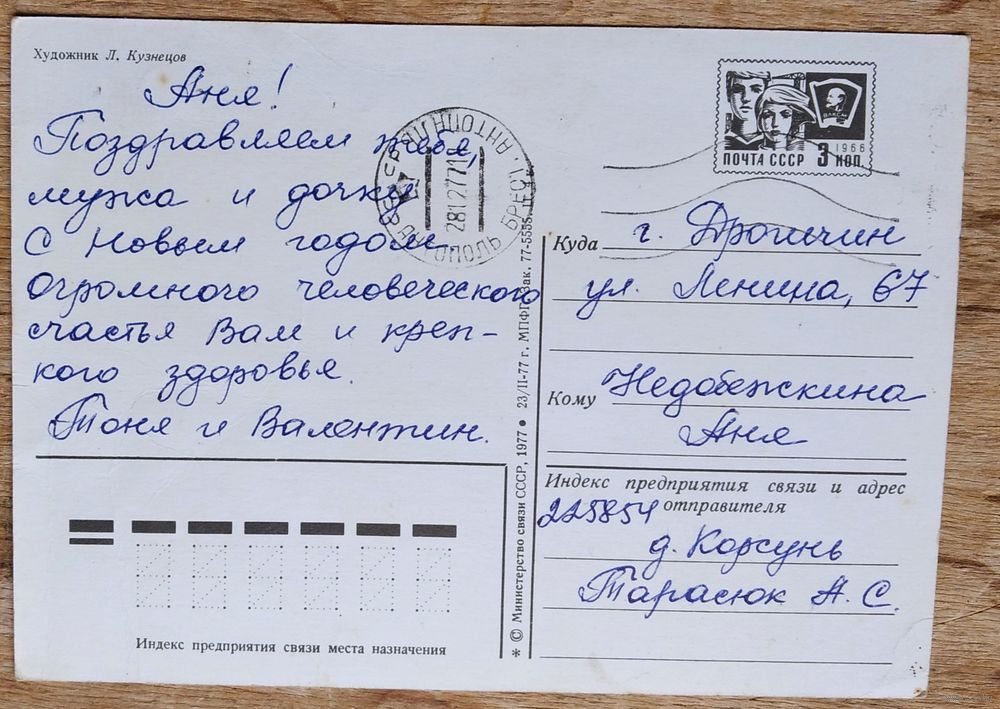 Художник Л. Кузнецов
Аня!
Поздравляем тебя,
мужа и дочку
с Новым годом.
Огромного человеческого
счастья Вам и креп-
кого здоровья.
Тоня и Валентин.
Индекс предприятия связи места назначения
АНТОПОЛЬ БРЕСТ.
281277
* © Министерство связи СССР, 1977 ● 23/II-77 г. МПФГ. Зак. 77-5555.
ВЛКСМ
1966
ПОЧТА СССР 3 КОП.
Куда г. Дрогичин
ул. Ленина, 67
Кому Недобежкина
Аня
Индекс предприятия связи и адрес
отправителя
225854
д. Корсунь
Тарасюк А. С.